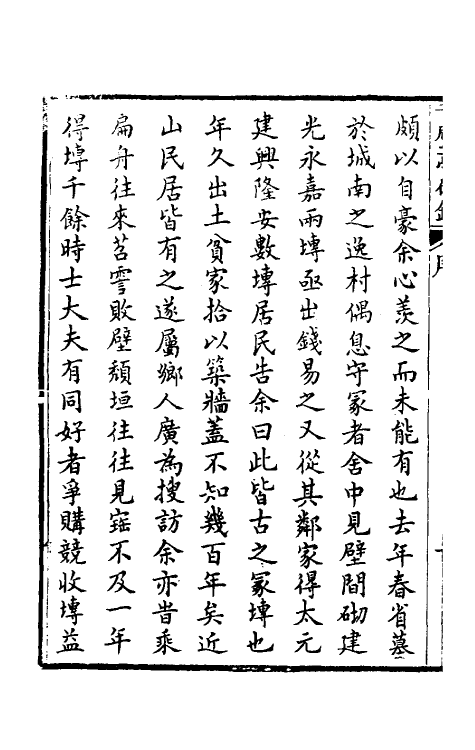 頗以自豪余心羨之而未能有也去年春省墓
於城南之逸村偶息守冢者舍中見壁間砌建
光永嘉兩塼亟出錢易之又從其鄰家得太元
建興隆安數塼居民告余曰此皆古之冢塼也
年久出土貧家拾以築牆蓋不知幾百年矣近
山民居皆有之遂屬鄉人廣為搜訪余亦時乘
扁舟往來苕霅敗壁頹垣往往見寶不及一年
得塼千餘時士大夫有同好者爭購競收塼益